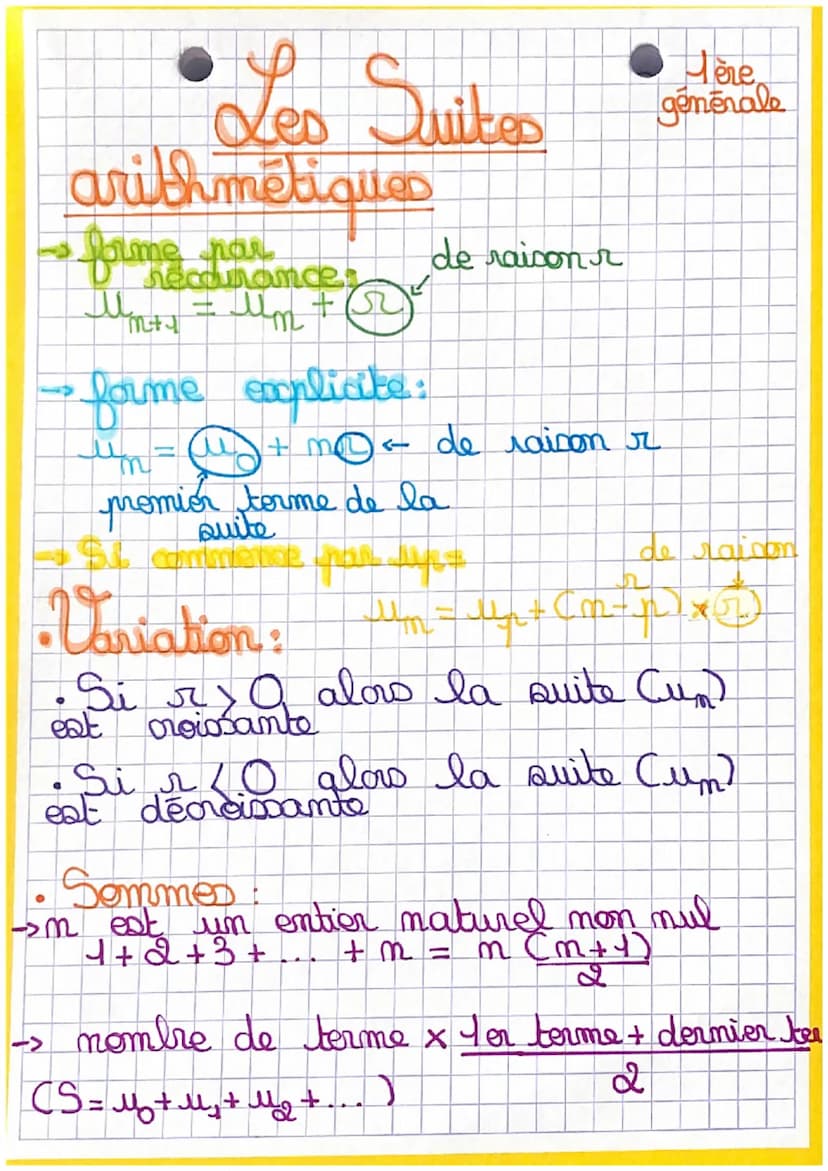 Les Suites
1ère
générale
arithmétiques
→ forme par
récurrence:
de raison r
u_{n+1} = u_n + r
→ forme explicite:
u_n = u_0 + nr ← de raison r
premier terme de la
suite
→ Si commence par up=
de raison
r
u_n = u_p + (n-p) × r
• Variation:
• Si r > 0 alors la suite (u_n)
est croissante
• Si r < 0 alors la suite (u_n)
est décroissante
• Sommes:
→ n est un entier naturel non nul
1 + 2 + 3 + ... + n = n (n+1)
2
→ nombre de terme × 1er terme + dernier ter
2
(S = u_0 + u_1 + u_2 + ...)